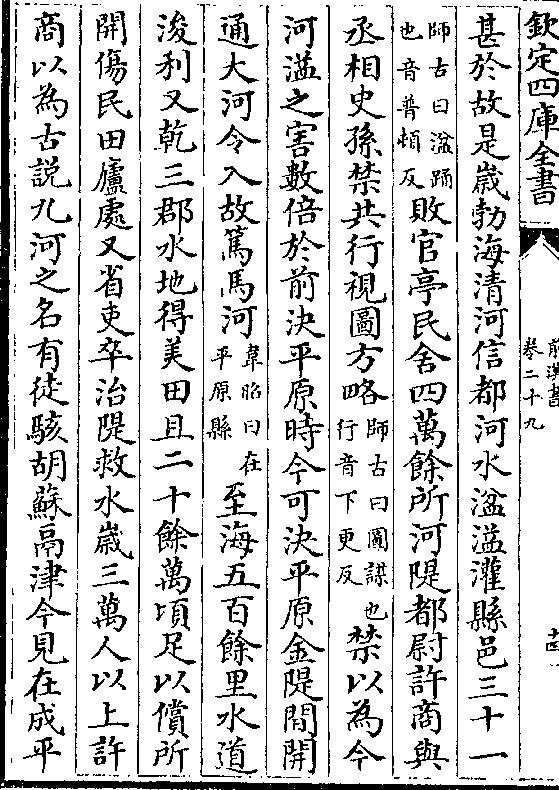 欽定四庫全書
前漢書
卷二十九
十四
甚於故是歲勃海清河信都河水湓溢灌縣邑三十一
師古曰湓踊
也音普頓反
敗官亭民舍四萬餘所河隄都尉許商與
丞相史孫禁共行視圖方略
師古曰圖謀也
行音下更反
禁以為今
河溢之害數倍於前決平原時今可決平原金隄間開
通大河令入故篤馬河
韋昭曰在
平原縣
至海五百餘里水道
浚利又乾三郡水地得美田且二十餘萬頃足以償所
開傷民田廬處又省吏卒治隄救水歲三萬人以上許
商以為古說九河之名有徒駭胡蘇鬲津今見在成平